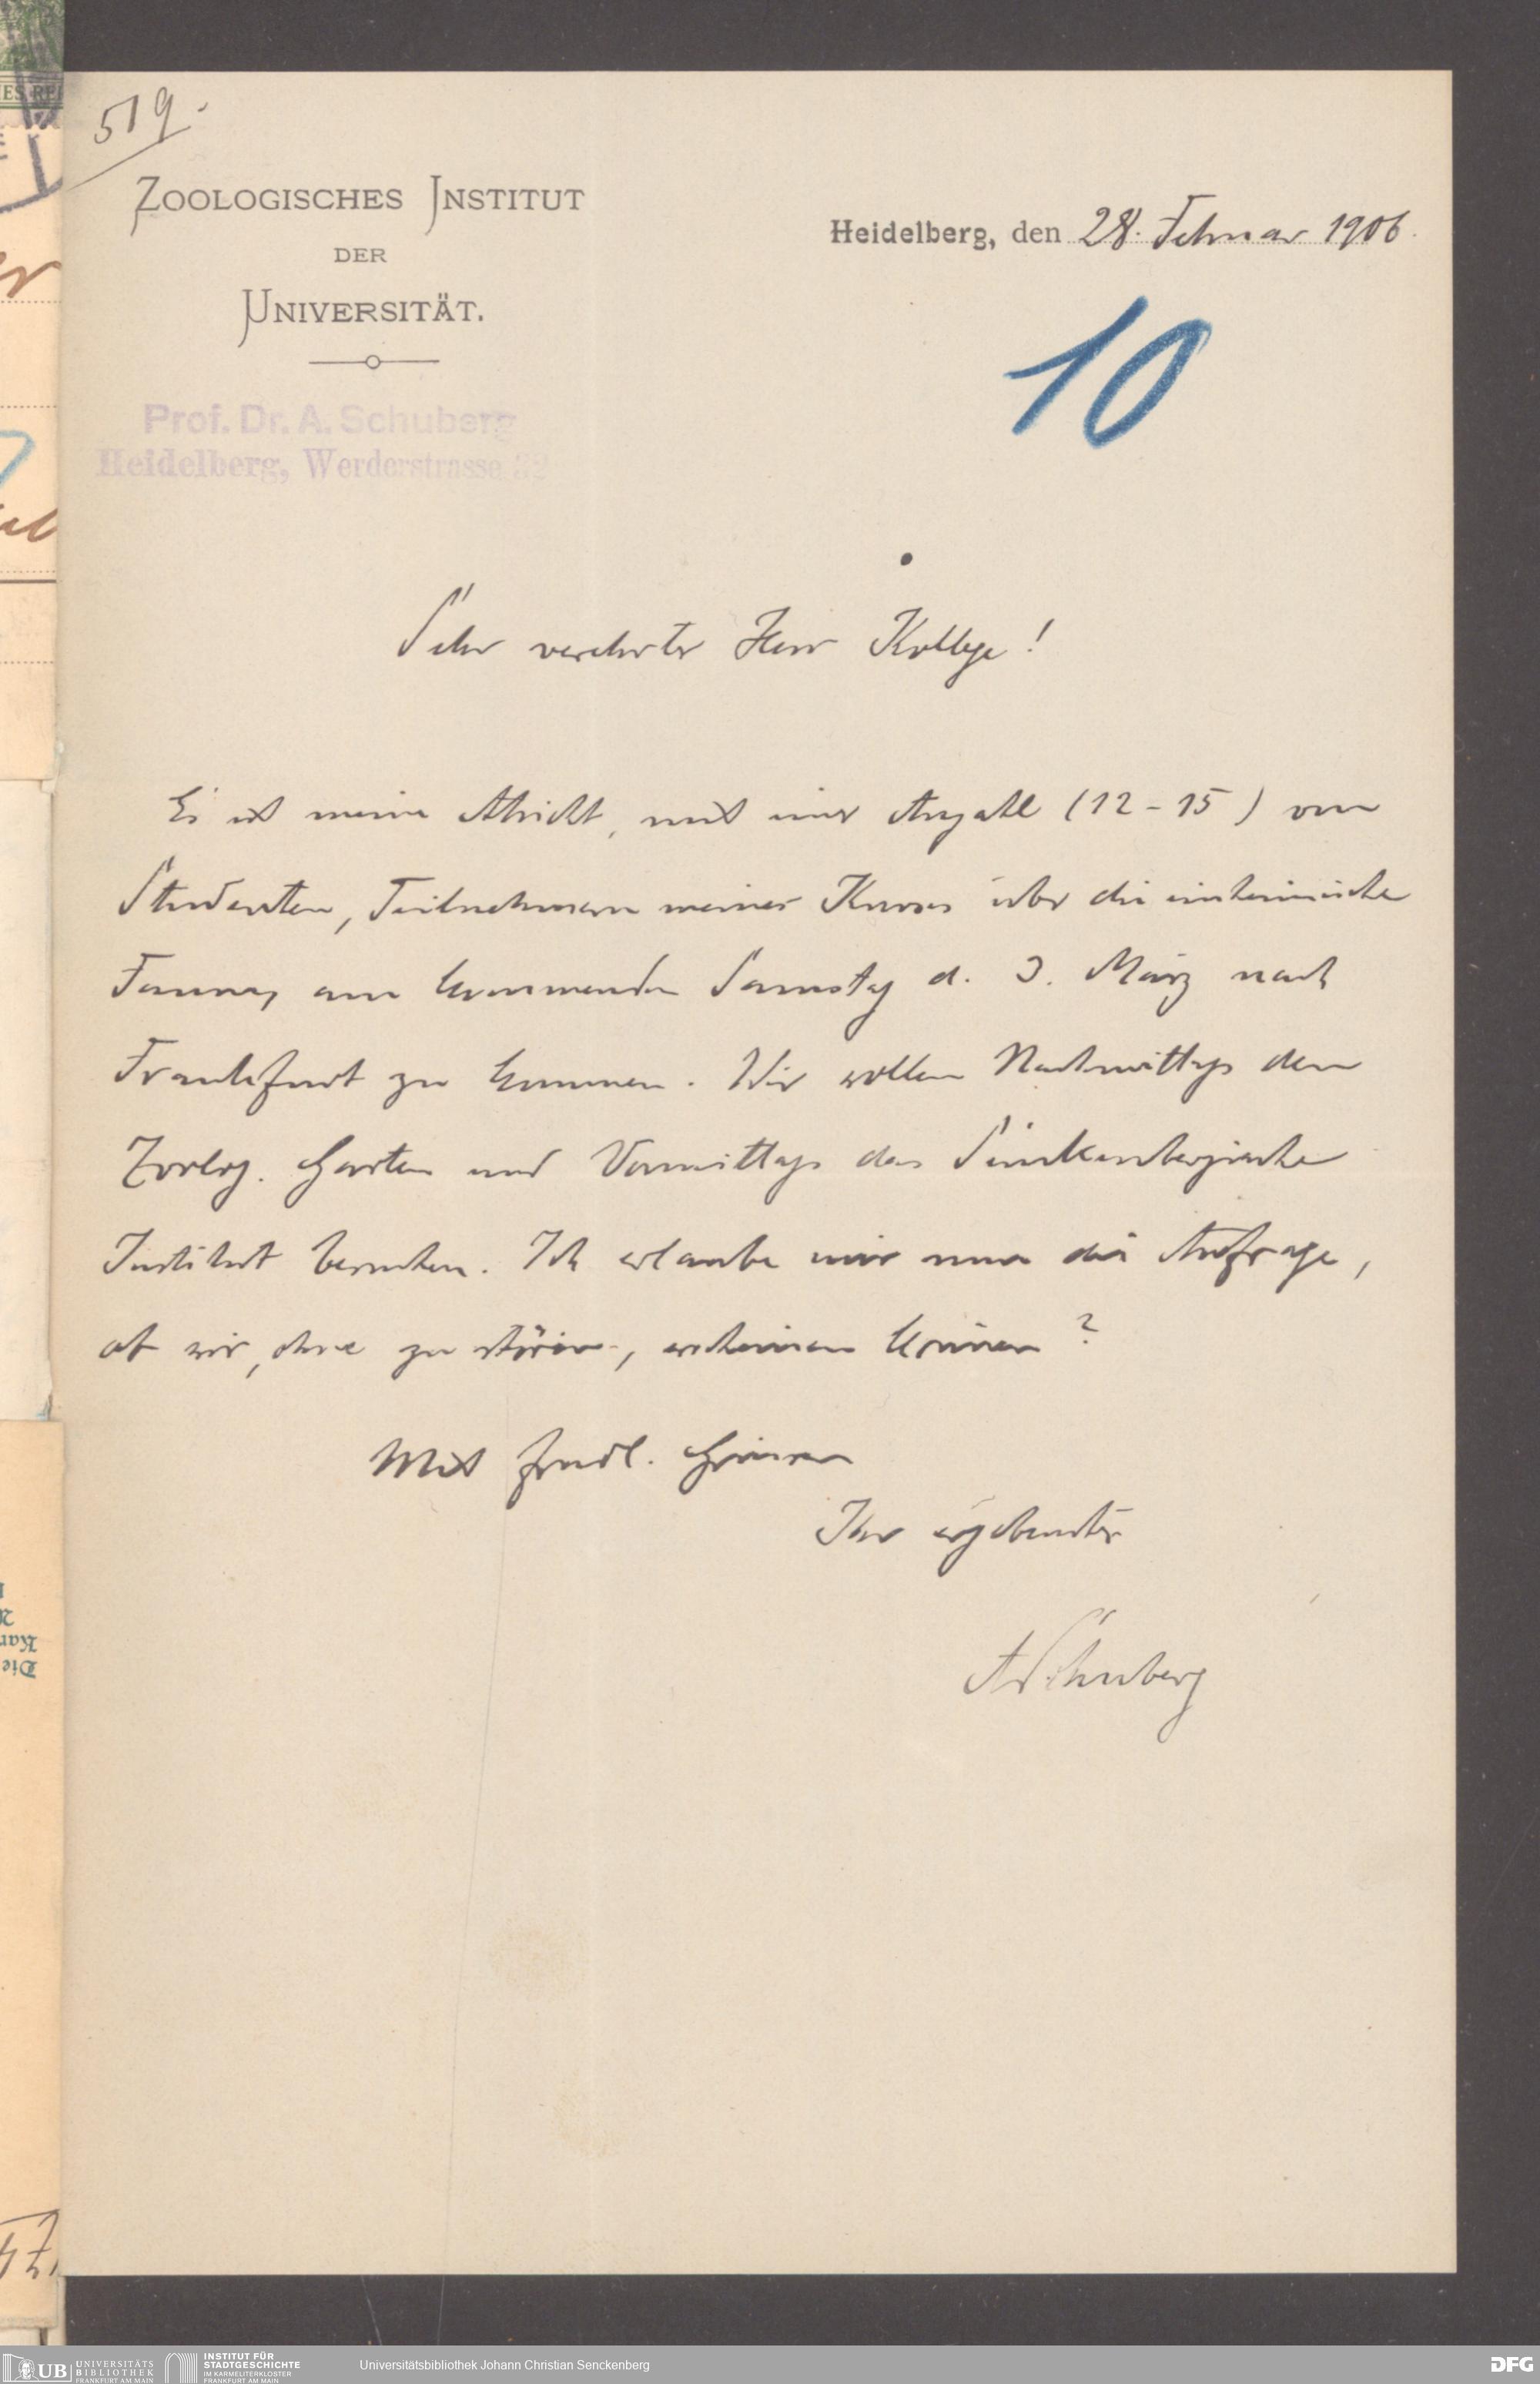 519.
ZOOLOGISCHES INSTITUT
DER
UNIVERSITÄT.
Heidelberg, den 28. Februar 1906.
10
Prof. Dr. A. Schuberg
Heidelberg, Werderstrasse 32
Sehr verehrter Herr Kollege!
Es ist meine Absicht, mit einer Anzahl (12-15) von
Studenten, Teilnehmern meines Kurses über die einheimische
Fauna, am kommenden Samstag d. 3. März nach
Frankfurt zu kommen. Wir wollen Nachmittags den
Zoolog. Garten und Vormittags das Senckenbergische
Institut besuchen. Ich erlaube mir nun die Anfrage,
ob wir, ohne zu stören, erscheinen können?
Mit frndl. Grüssen
Ihr ergebenster
A Schuberg
UB
UNIVERSITÄTS
BIBLIOTHEK
FRANKFURT AM MAIN
INSTITUT FÜR
STADTGESCHICHTE
IM KARMELITERKLOSTER
FRANKFURT AM MAIN
Universitätsbibliothek Johann Christian Senckenberg
DFG